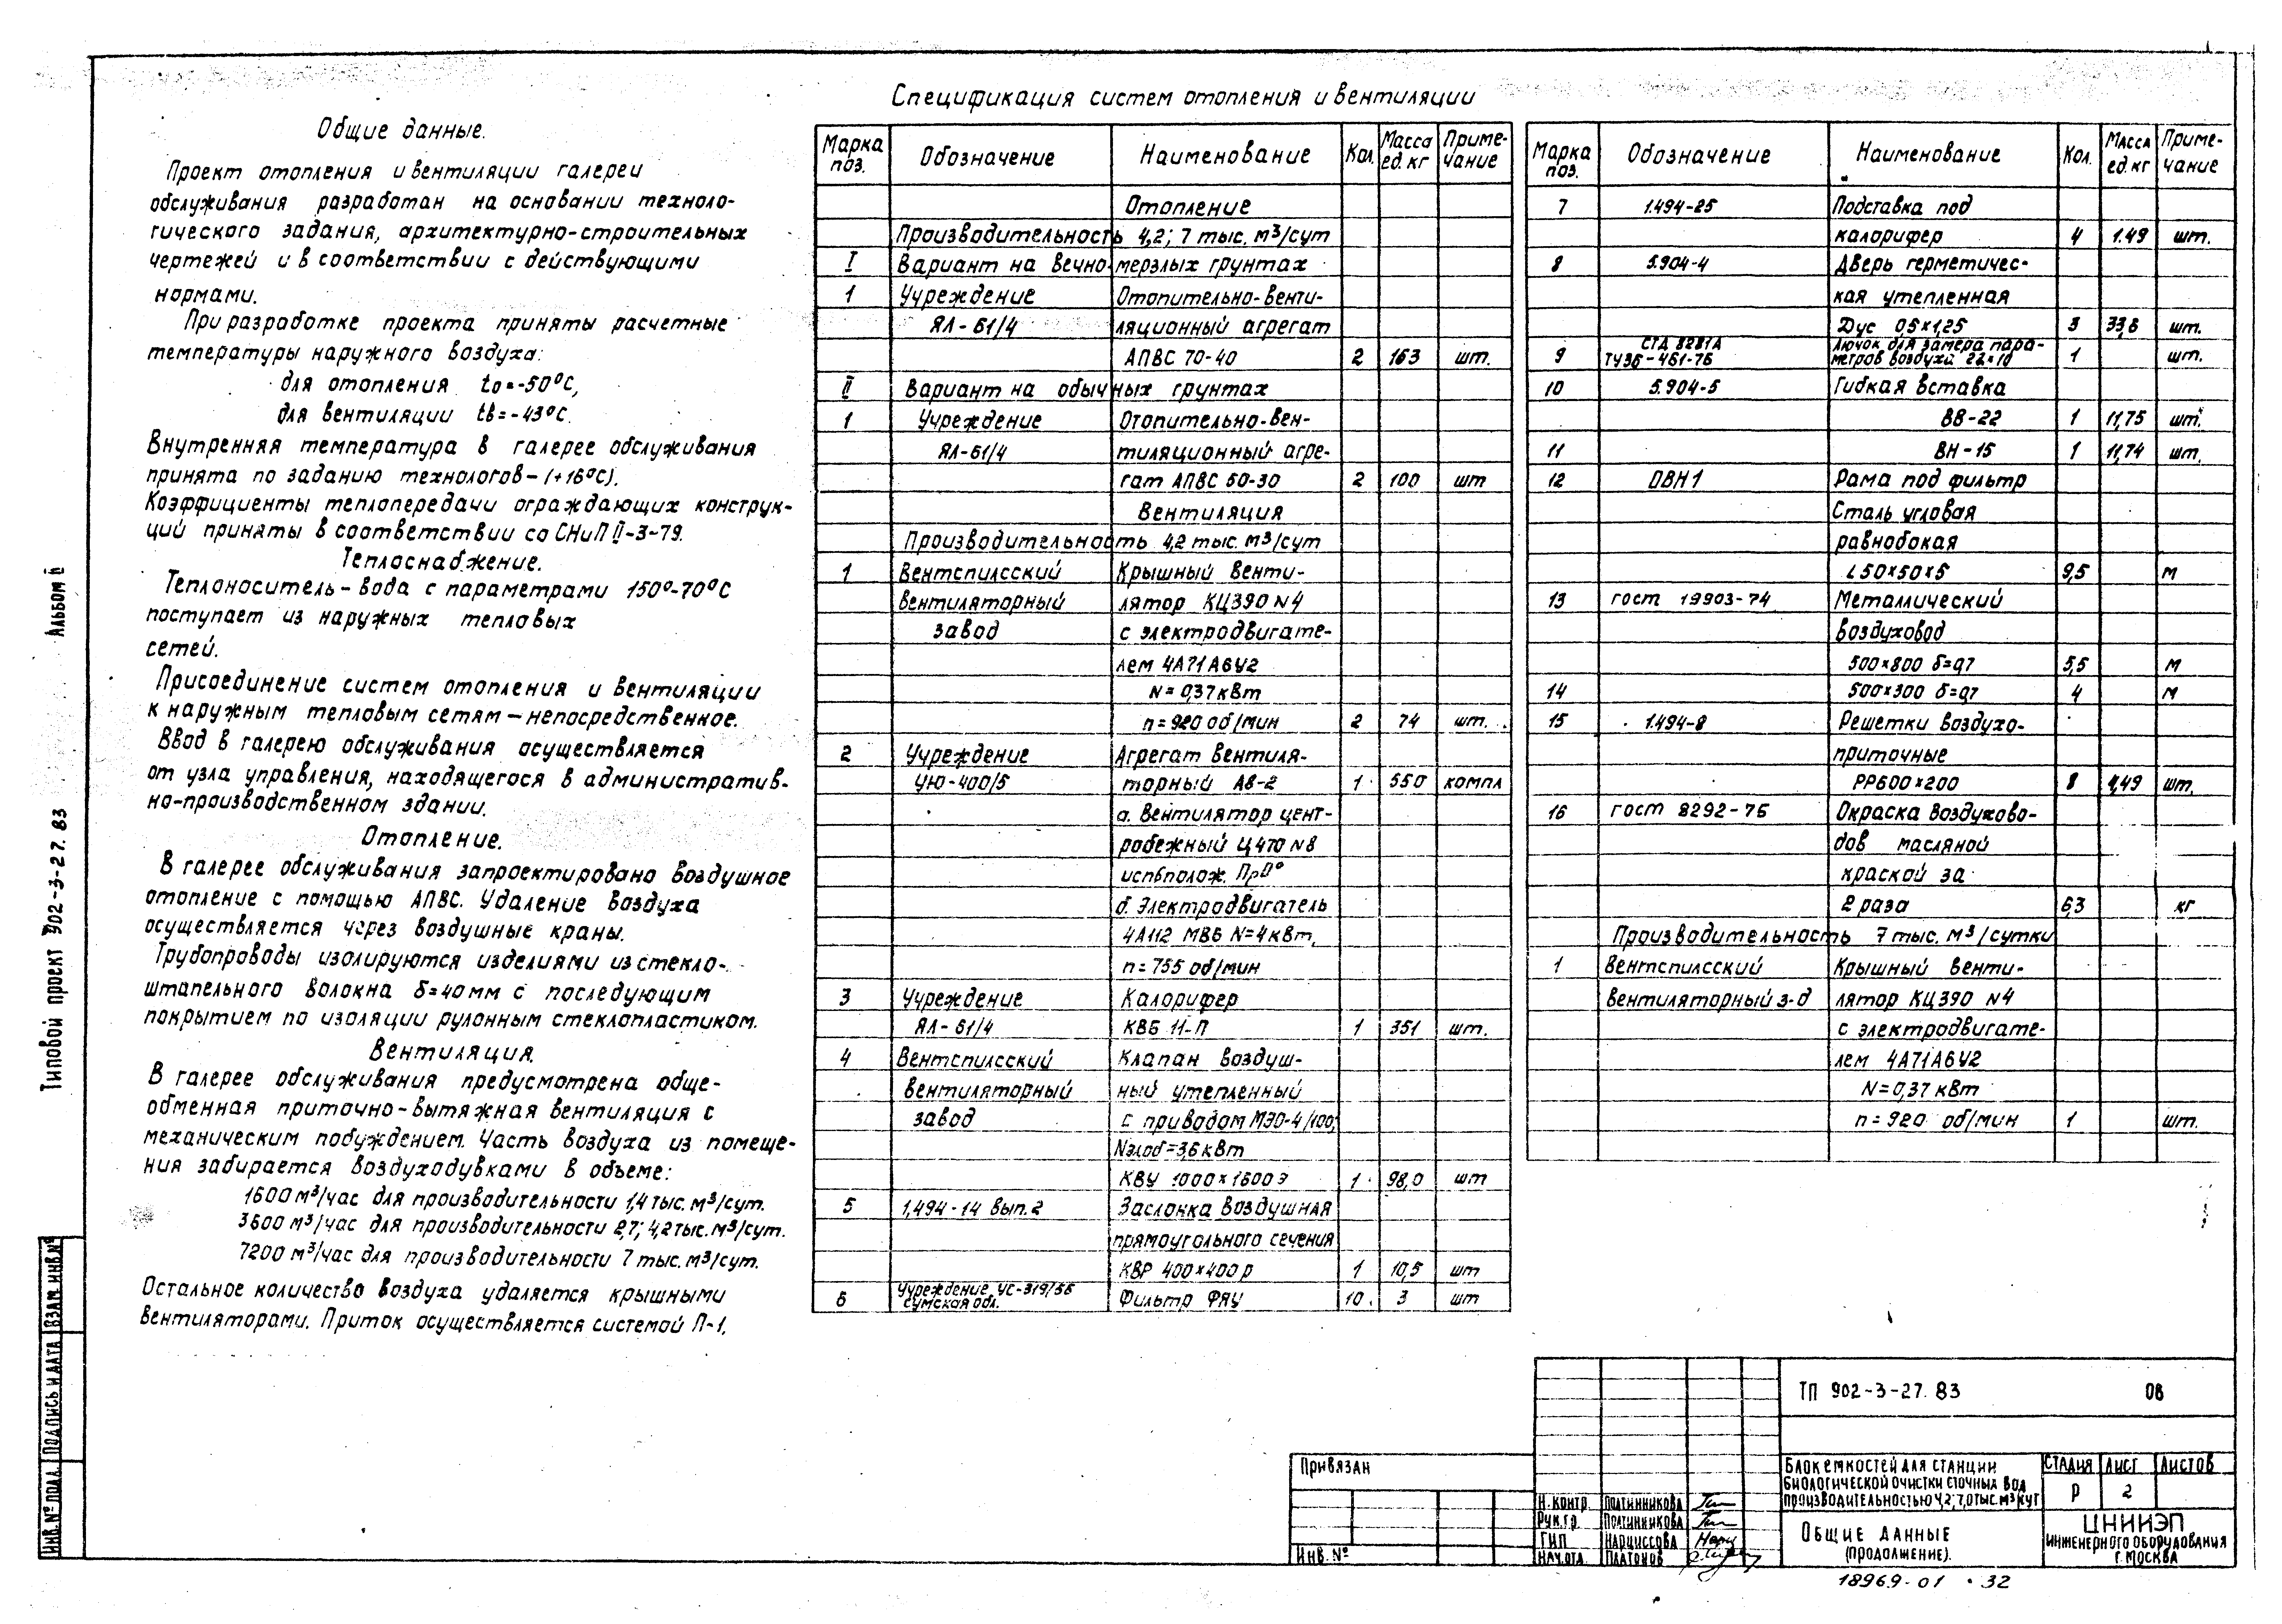 Общие данные.
Проект отопления и вентиляции галереи
обслуживания разработан на основании техноло-
гического задания, архитектурно-строительных
чертежей и в соответствии с действующими
нормами.
При разработке проекта приняты расчетные
температуры наружного воздуха:
для отопления tо=-50°С,
для вентиляции tв=-43°С.
Внутренняя температура в галерее обслуживания
принята по заданию технологов-(+16°С).
Коэффициенты теплопередачи ограждающих конструк-
ций приняты в соответствии со СНиП II-3-79.
Теплоснабжение.
Теплоноситель-вода с параметрами 150°-70°С
поступает из наружных тепловых
сетей.
Присоединение систем отопления и вентиляции
к наружным тепловым сетям-непосредственное.
Ввод в галерею обслуживания осуществляется
от узла управления, находящегося в административ-
но-производственном здании.
Отопление.
В галерее обслуживания запроектировано воздушное
отопление с помощью АПВС. Удаление воздуха
осуществляется через воздушные краны.
Трубопроводы изолируются изделиями из стекло-
штапельного волокна δ=40мм с последующим
покрытием по изоляции рулонным стеклопластиком.
Вентиляция.
В галерее обслуживания предусмотрена обще-
обменная приточно-вытяжная вентиляция с
механическим побуждением. Часть воздуха из помеще-
ния забирается воздуходувками в объеме:
1600м³/час для производительности 1,4 тыс. м³/сут.
3600м³/час для производительности 2,7; 4,2 тыс. м³/сут.
7200м³/час для производительности 7 тыс. м³/сут.
Остальное количество воздуха удаляется крышными
вентиляторами. Приток осуществляется системой П-1.
Спецификация систем отопления и вентиляции
Марка поз. Обозначение Наименование Кол. Масса ед. кг Приме-чание
Отопление
Производительность 4,2; 7 тыс. м³/сут
I Вариант на вечномерзлых грунтах
1 Учреждение Отопительно-венти-
ЯЛ-61/4 ляционный агрегат
АПВС 70-40 2 163 шт.
II Вариант на обычных грунтах
1 Учреждение Отопительно-вен-
ЯЛ-61/4 тиляционный агре-
гат АПВС 50-30 2 100 шт
Вентиляция
Производительность 4,2 тыс. м³/сут
1 Вентспилсский Крышный венти-
вентиляторный лятор КЦ390 N4
завод с электродвигате-
лем 4А71А6У2
N=0,37кВт
n=920 об/мин 2 74 шт.
2 Учреждение Агрегат вентиля-
УЮ-400/5 торный А8-2 1 550 компл
а. Вентилятор цент-
робежный Ц470 N8
исп6полож. Пр0°
б. Электродвигатель
4А112 МВ6 N=4кВт,
n=755 об/мин
3 Учреждение Калорифер
ЯЛ-61/4 КВБ 11-П 1 351 шт.
4 Вентспилсский Клапан воздуш-
вентиляторный ный утепленный
завод с приводом МЭО-4/100,
Nэлоб=3,6кВт
КВУ 1000×1600Э 1 98,0 шт
5 1.494-14 вып.2 Заслонка воздушная
прямоугольного сечения
КВР 400×400р 1 10,5 шт
6 Учреждение УС-319/56 Сумская обл. Фильтр ФЯУ 10 3 шт
Марка поз. Обозначение Наименование Кол. Масса ед. кг Приме-чание
7 1.494-25 Подставка под
калорифер 4 1.49 шт.
8 5.904-4 Дверь герметичес-
кая утепленная
Дус 0,5×1,25 3 33,6 шт.
9 СТД 8281А ТУ36-461-76 Лючок для замера пара-метров воздуха 22×10 1 шт.
10 5.904-5 Гибкая вставка
ВВ-22 1 11,75 шт.
11 ВН-15 1 11,74 шт.
12 ПВН1 Рама под фильтр
Сталь угловая
равнобокая
L50×50×5 9,5 м
13 ГОСТ 19903-74 Металлический
воздуховод
500×800 δ=0,7 5,5 м
14 500×300 δ=0,7 4 м
15 1.494-8 Решетки воздухо-
приточные
РР600×200 8 4,49 шт.
16 ГОСТ 8292-75 Окраска воздухово-
дов масляной
краской за
2 раза 6,3 кг
Производительность 7 тыс. м³/сутки
1 Вентспилсский Крышный венти-
вентиляторный з-д лятор КЦ390 N4
с электродвигате-
лем 4А71А6У2
N=0,37 кВт
n=920 об/мин 1 шт.
Альбом II
Типовой проект 902-3-27.83
Инв.№ подл. Подпись и дата Взам. инв.№
Привязан
Инв. №
Н.контр. Полтинникова
Рук.гр. Полтинникова
ГИП Нарциссова
Нач.отд. Платонов
ТП 902-3-27.83 ОВ
Блок емкостей для станции
биологической очистки сточных вод
производительностью 4,2; 7,0 тыс. м³/сут
Стадия Лист Листов
Р 2
Общие данные
(продолжение).
ЦНИИЭП
инженерного оборудования
г. Москва
18969-01 32